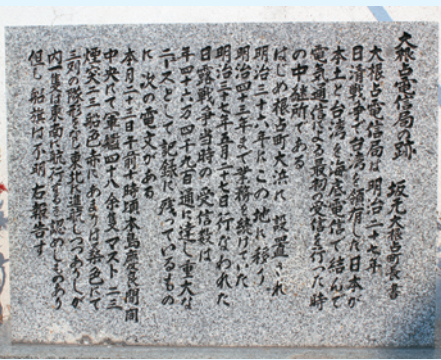 大根占電信局の跡　坂元大根占町長書
大根占電信局は明治二十七年
日清戦争で台湾を領有した日本が
本土と台湾を海底電信で結んで
電気通信による最初の受信を行った時
の中継所である
はじめ根占町大浜に設置され
明治三十七年にこの地に移り
明治四十二年まで業務を続けていた
明治三十七年五月二十七日行なわれた
日露戦争当時の受信数は
年四六万四千九百通に達し重大な
ニュースとして記録に残っているもの
に次の電文がある
本月二十二日午前十時頃本島慶良間間
中央にて軍艦四十八余隻マスト二三
煙突二三船色赤にあるいは鼠色にて
三列の隊形をなし東北に進航しつつありしが
内一隻は東南に航行するを認めしものあり
但し船旗は不明右報告す